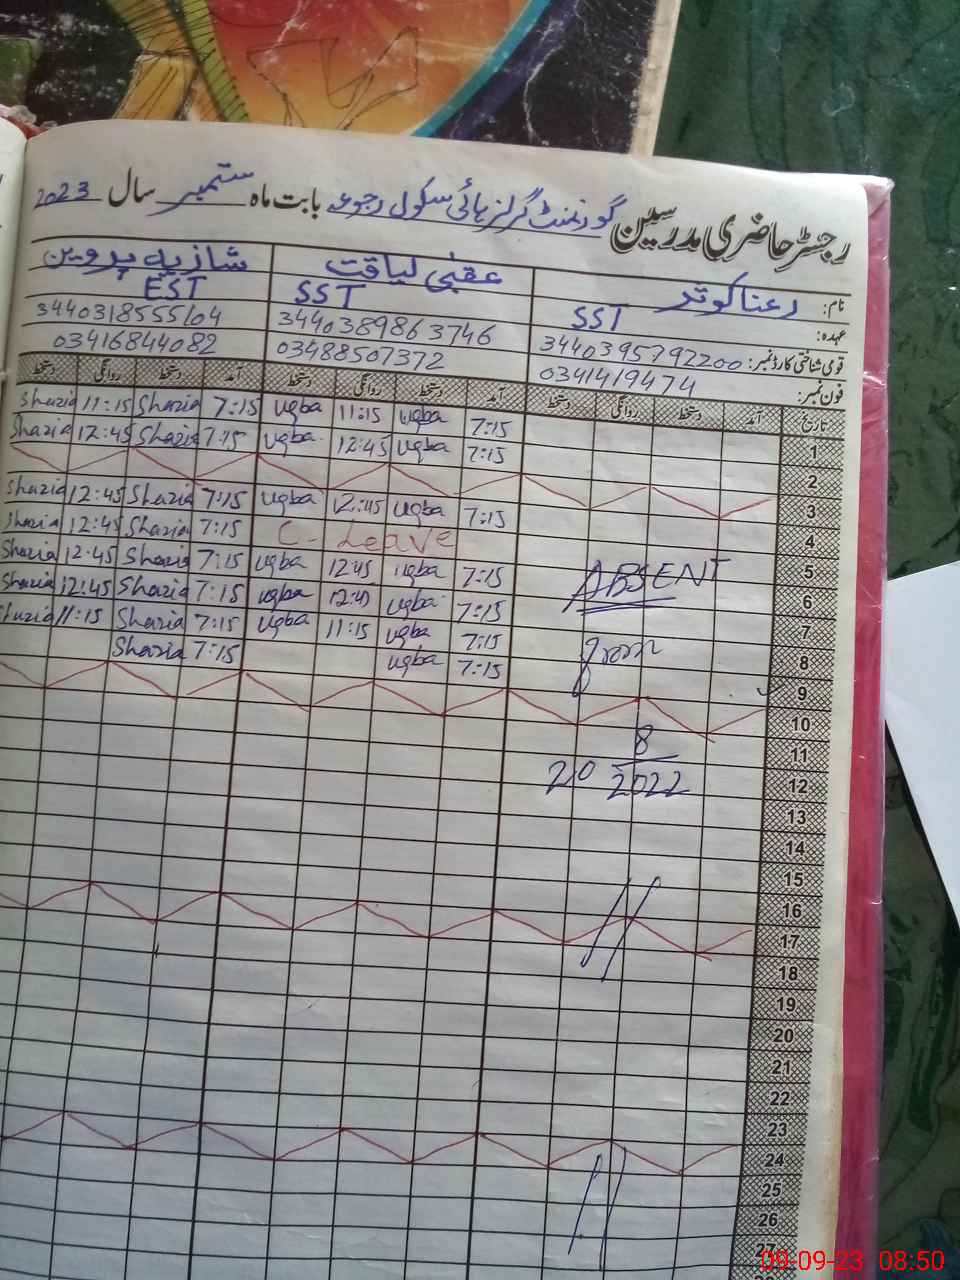 رجسٹر حاضری مدرسین گورنمنٹ گرلز ہائی سکول رجوعہ بابت ماہ ستمبر سال 2023
نام: رعنا کوثر عقبیٰ لیاقت شازیہ پروین
عہدہ: SST SST EST
قومی شناختی کارڈ نمبر: 3440395792200 3440389863746 3440318555104
فون نمبر: 0341419474 03488507372 03416844082
تاریخ آمد دستخط روانگی دستخط آمد دستخط روانگی دستخط آمد دستخط روانگی دستخط
1 7:15 uqba 11:15 uqba 7:15 Shazia 11:15 Shazia
2 7:15 uqba 12:45 uqba 7:15 Shazia 12:45 Shazia
3
4 7:15 uqba 12:45 uqba 7:15 Shazia 12:45 Shazia
5 C. Leave 7:15 Shazia 12:45 Shazia
6 ABSENT 7:15 uqba 12:45 uqba 7:15 Shazia 12:45 Shazia
7 7:15 uqba 12:45 uqba 7:15 Shazia 12:45 Shazia
8 from 7:15 uqba 11:15 uqba 7:15 Shazia 11:15 Shazia
9 7:15 uqba 7:15 Shazia
10
11 8
12 20 2022
13
14
15
16
17
18
19
20
21
22
23
24
25
26
27
09-09-23 08:50